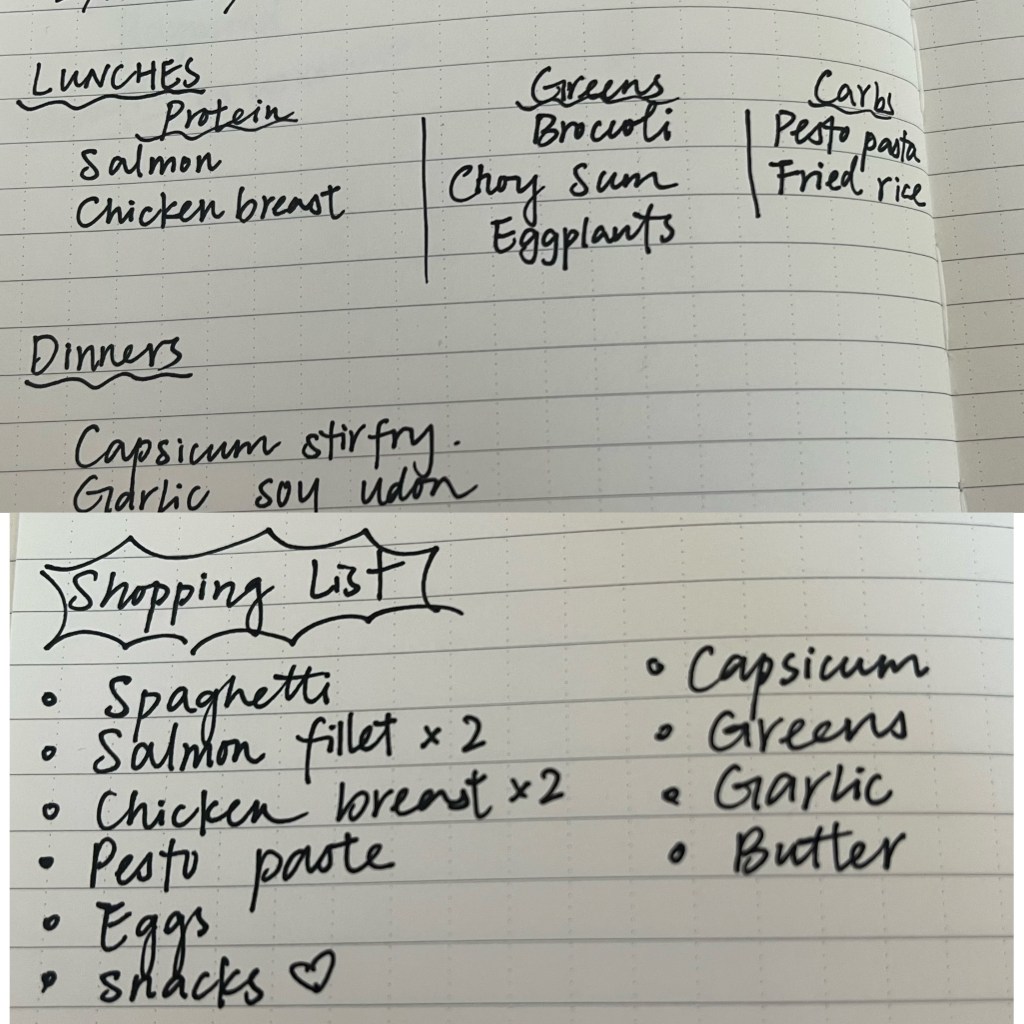 LUNCHES
Protein
Salmon
Chicken breast
Greens
Broccoli
Choy Sum
Eggplants
Carbs
Pesto pasta
Fried rice
Dinners
Capsicum stir fry.
Garlic soy udon
Shopping List
• Spaghetti
• Salmon fillet x 2
• Chicken breast x2
• Pesto paste
• Eggs
• snacks ♡
• Capsicum
• Greens
• Garlic
• Butter